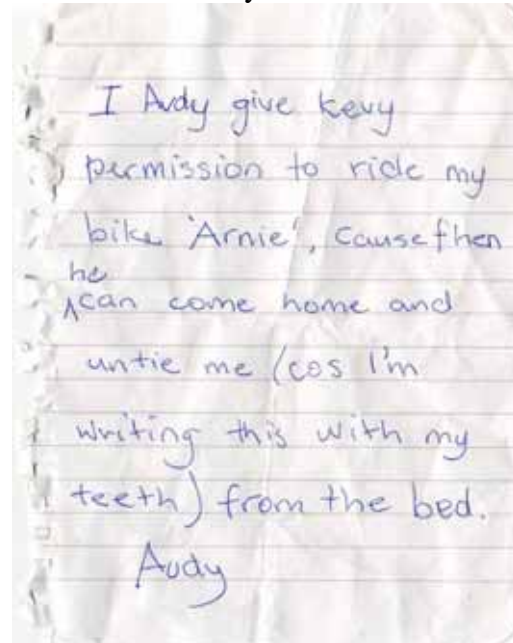 I Audy give kevy
permission to ride my
bike 'Arnie', cause then
he
^can come home and
untie me (cos I'm
writing this with my
teeth) from the bed.
Audy